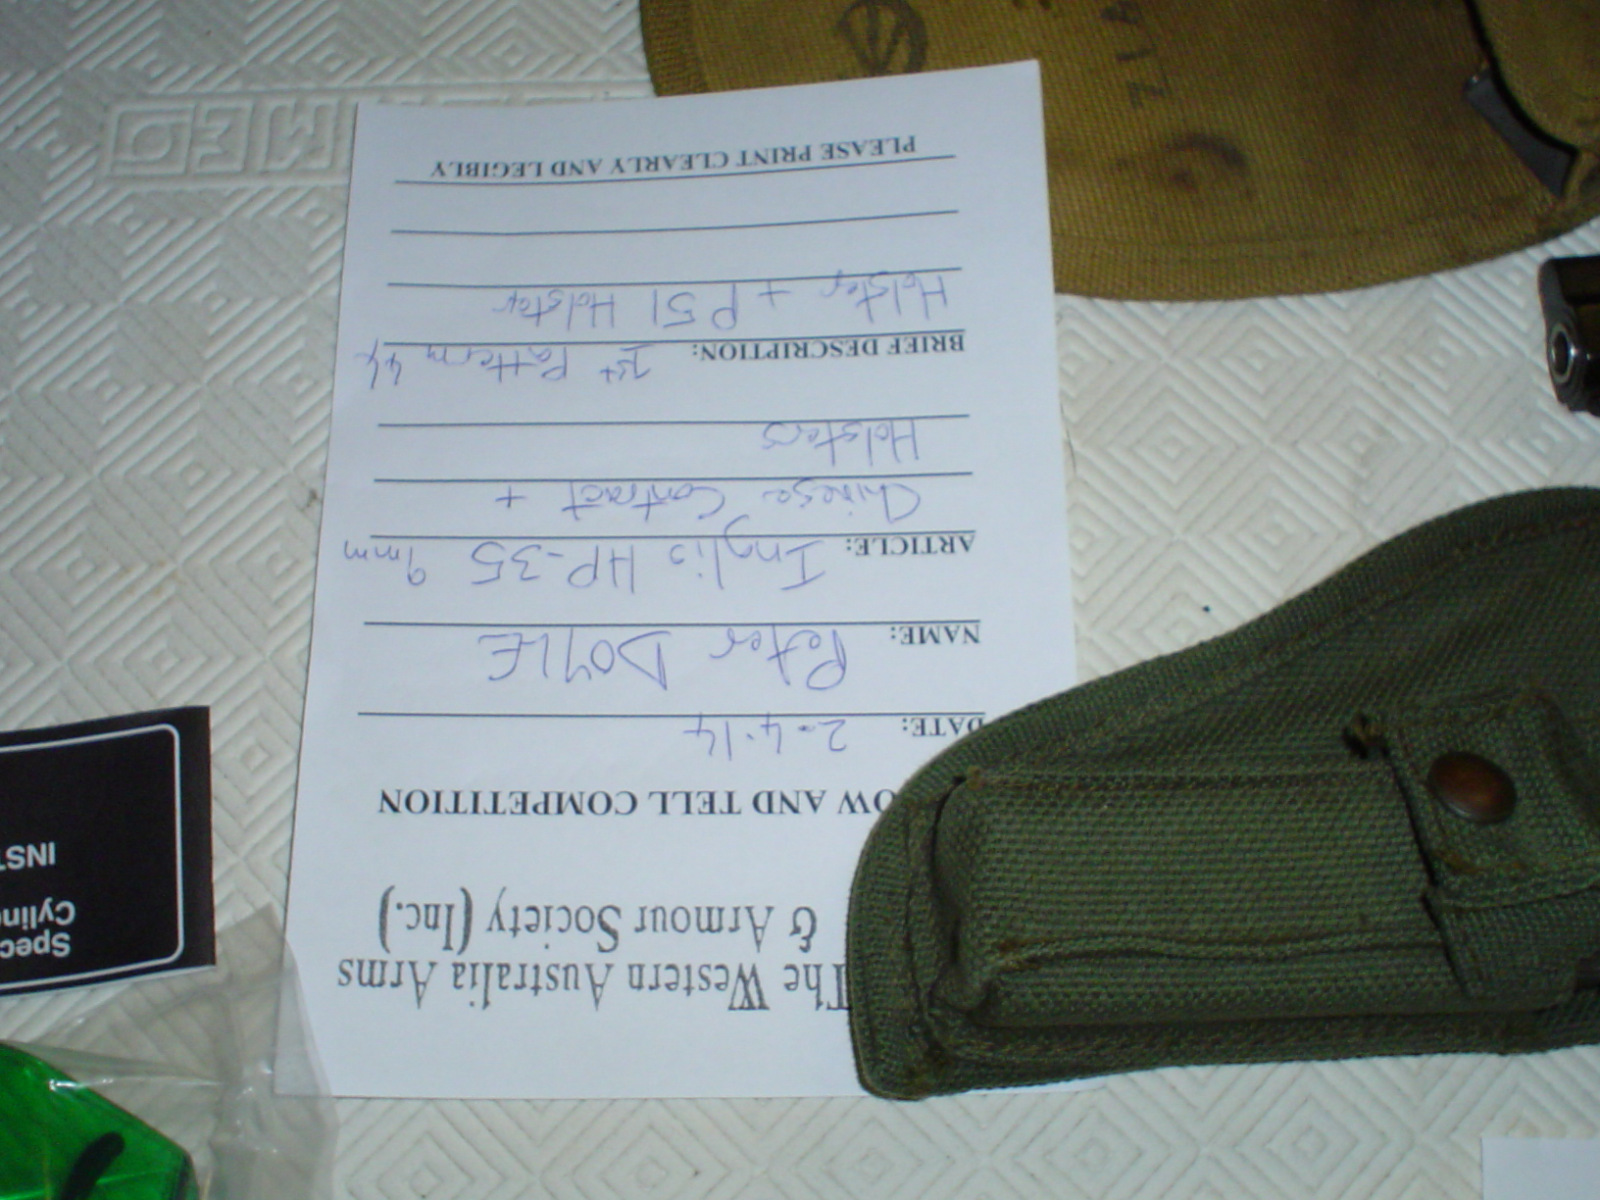 The Western Australia Arms
& Armour Society (Inc.)
OW AND TELL COMPETITION
DATE: 2-4-14
NAME: Peter DOYLE
ARTICLE: Inglis HP-35 9mm
Chinese Contract +
Holsters
BRIEF DESCRIPTION: 1st Pattern 44
Holster + P51 Holster
PLEASE PRINT CLEARLY AND LEGIBLY
Spec
Cylin
INST